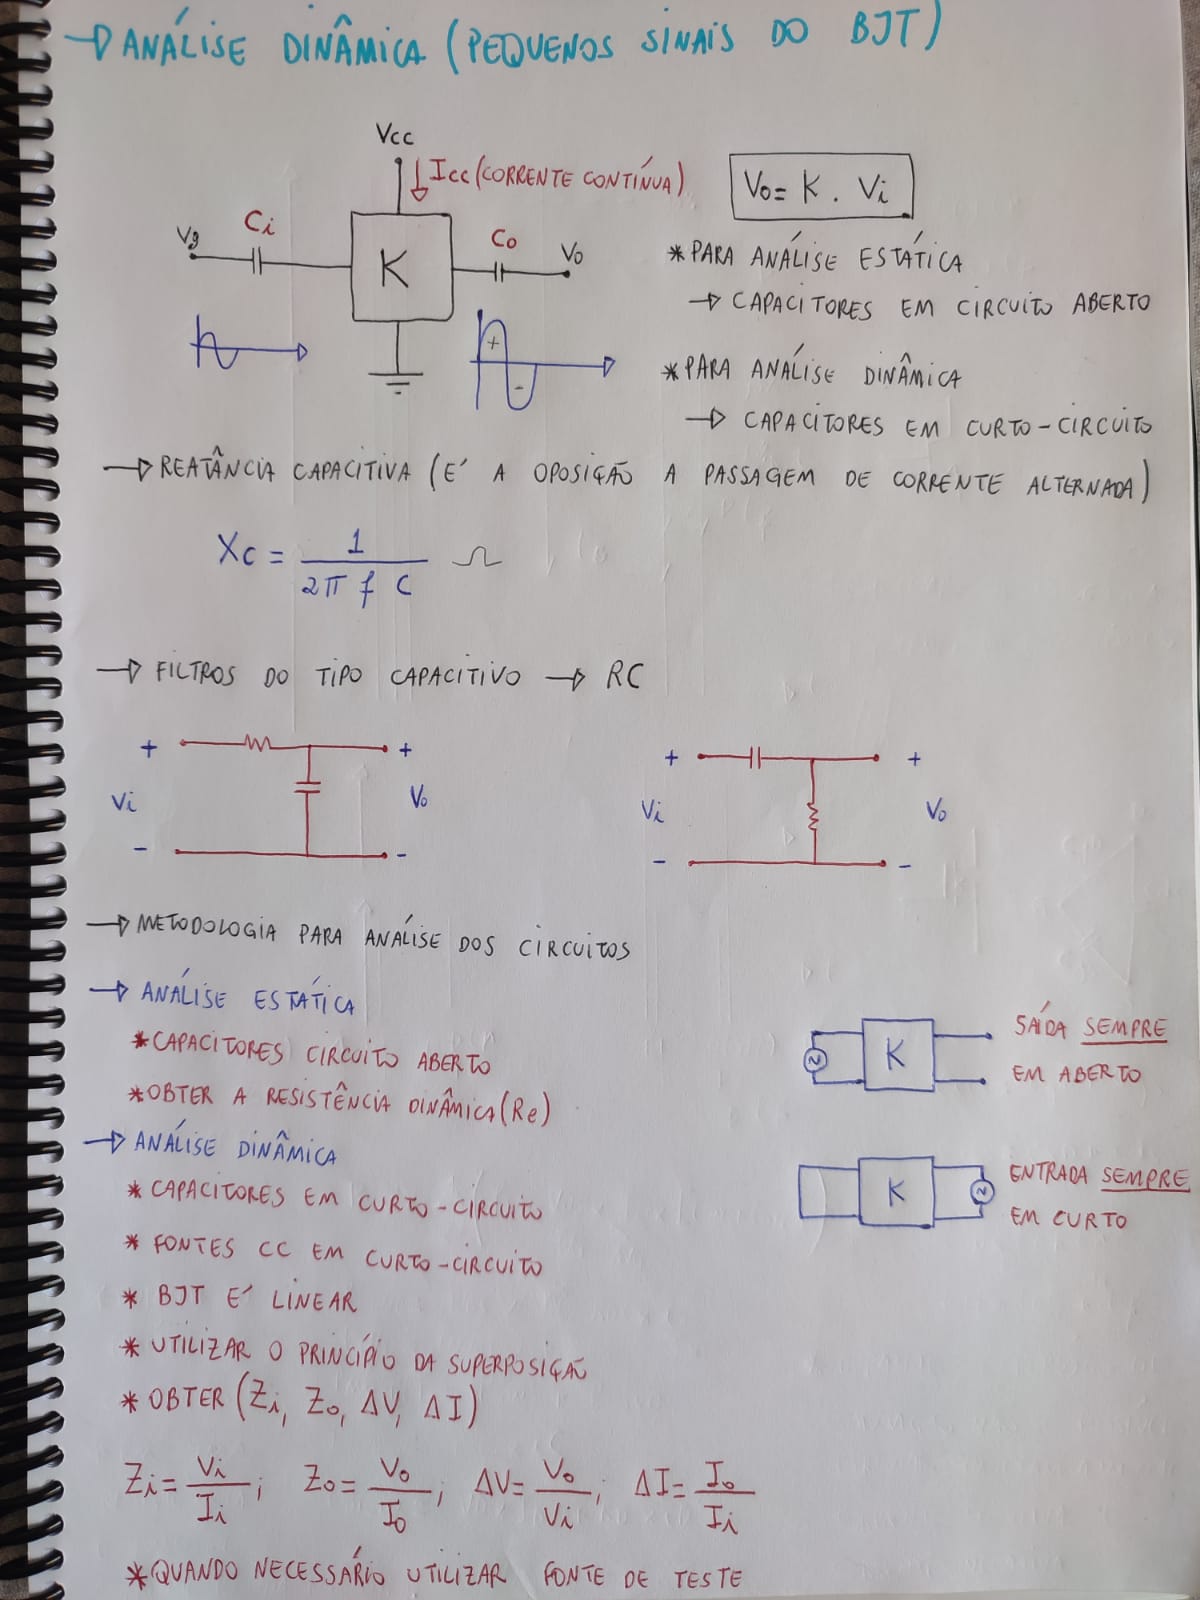 → ANÁLISE DINÂMICA (PEQUENOS SINAIS DO BJT)
Vcc
Icc (CORRENTE CONTÍNUA)
Vo = K . Vi
Vg
Ci
K
Co
Vo
* PARA ANÁLISE ESTÁTICA
→ CAPACITORES EM CIRCUITO ABERTO
+
-
* PARA ANÁLISE DINÂMICA
→ CAPACITORES EM CURTO-CIRCUITO
→ REATÂNCIA CAPACITIVA (E' A OPOSIÇÃO A PASSAGEM DE CORRENTE ALTERNADA)
Xc = 1 / 2π f C Ω
→ FILTROS DO TIPO CAPACITIVO → RC
+ +
Vi Vo
- -
+ +
Vi Vo
- -
→ METODOLOGIA PARA ANÁLISE DOS CIRCUITOS
→ ANÁLISE ESTÁTICA
* CAPACITORES CIRCUITO ABERTO
* OBTER A RESISTÊNCIA DINÂMICA (Re)
K
SAÍDA SEMPRE
EM ABERTO
→ ANÁLISE DINÂMICA
* CAPACITORES EM CURTO-CIRCUITO
* FONTES CC EM CURTO-CIRCUITO
K
ENTRADA SEMPRE
EM CURTO
* BJT E' LINEAR
* UTILIZAR O PRINCÍPIO DA SUPERPOSIÇÃO
* OBTER (Zi, Zo, ΔV, ΔI)
Zi = Vi / Ii ; Zo = Vo / Io ; ΔV = Vo / Vi ; ΔI = Io / Ii
* QUANDO NECESSÁRIO UTILIZAR FONTE DE TESTE